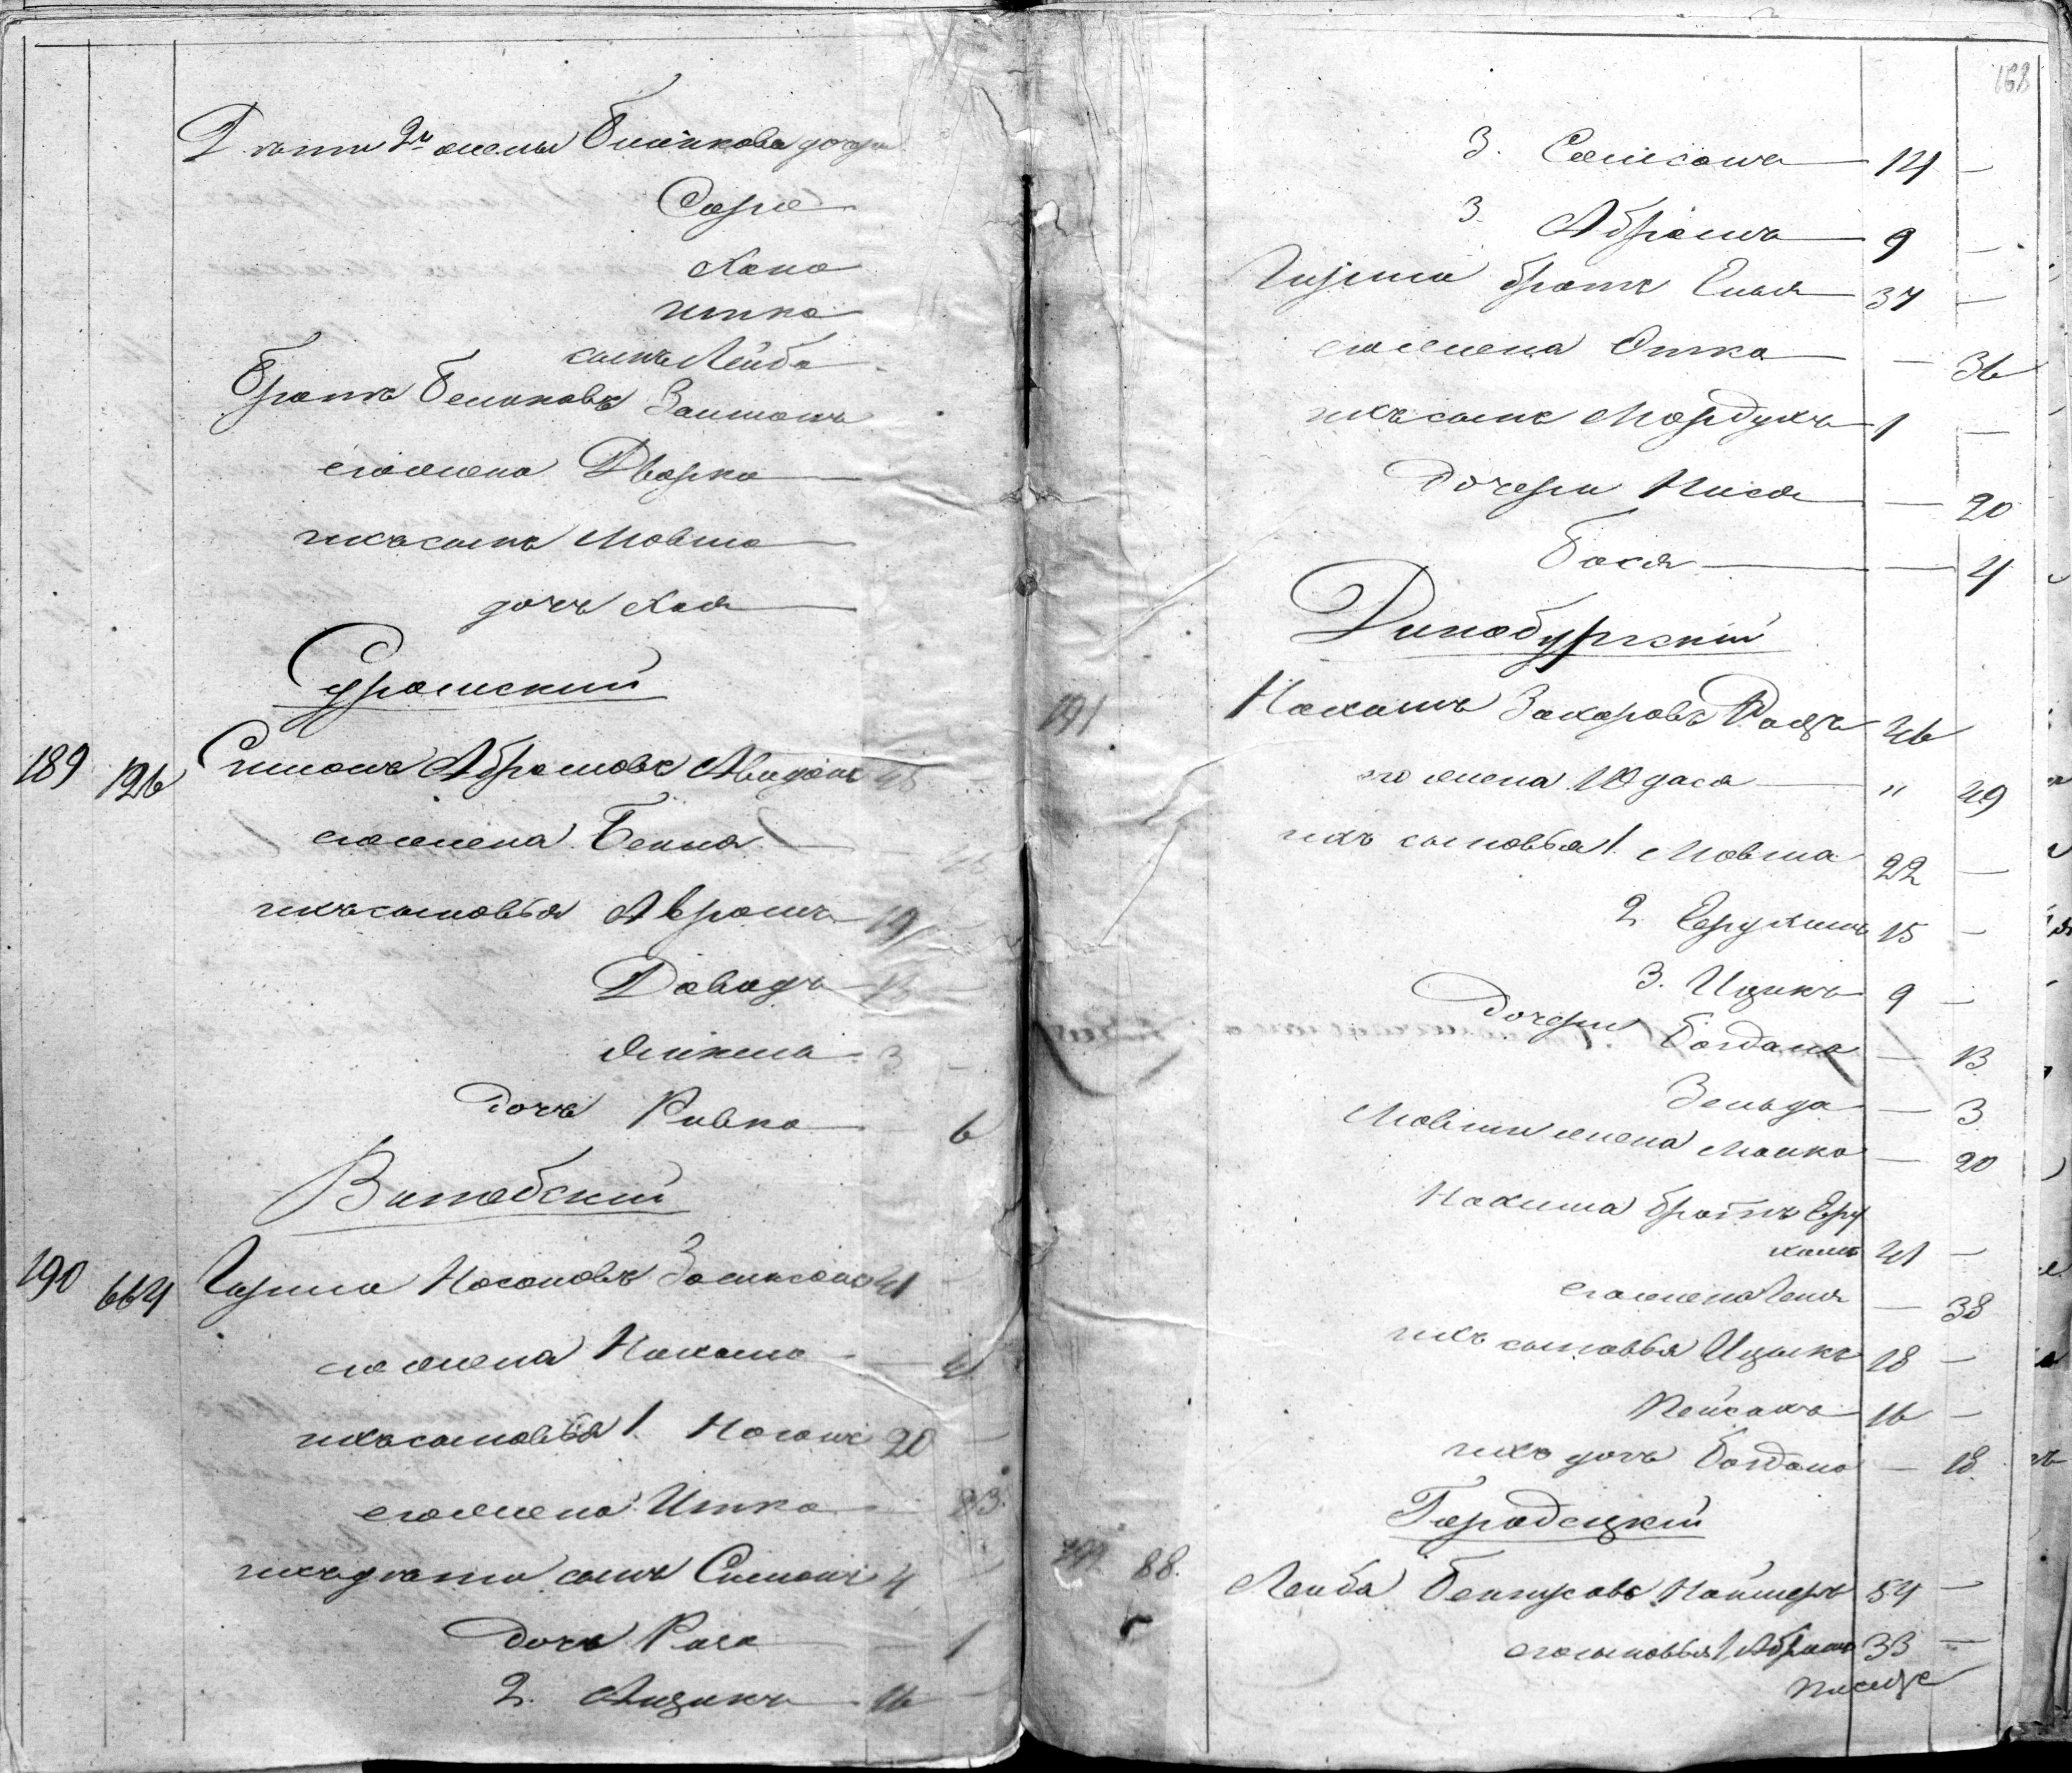 Дѣти 2й жены Бенинкова дочери
Сора
Хана
Итка
сынъ Лейба
Братъ Бенинковъ Залманъ
его жена Дворка
ихъ сынъ Мовша
дочь Хая
Суражскій
189 126 Симонъ Абрамовъ 45
его жена Бейля
ихъ сыновья Аврамъ 19
Давидъ 13 —
3 —
дочь Ривка 6
Витебскій
190 664 Гирша Носоновъ 41 —
его жена Нахама — 41
ихъ сыновья 1. Носонъ 20 —
его жена Итка — 23
ихъ дѣти сынъ Симонъ 4 —
дочь Раса — 1
2. Айзикъ 16 —
168
3. 14 —
3. Абрамъ 9 —
Гирша братъ Елья 37 —
его жена Этка — 36
ихъ сынъ Мордухъ 1 —
дочери Нися — 20
Бася — 4
Динабургскій
191 Нахимъ Захаровъ Рацъ 46
его жена Юдася " 49
ихъ сыновья 1. Мовша 22 —
2. Ерухимъ 15 —
3. Ицикъ 9 —
дочери Богдана — 13
Зельда — 3
Мовши жена Малка — 20
Нахима братъ Еру
химъ 41 —
его жена Геня — 38
ихъ сыновья Ицыкъ 18 —
Пейсахъ 16 —
ихъ дочь Богдана — 18
Городецкій
192 88. Лейба 54 —
его сыновья 1 Абрамъ 33 —